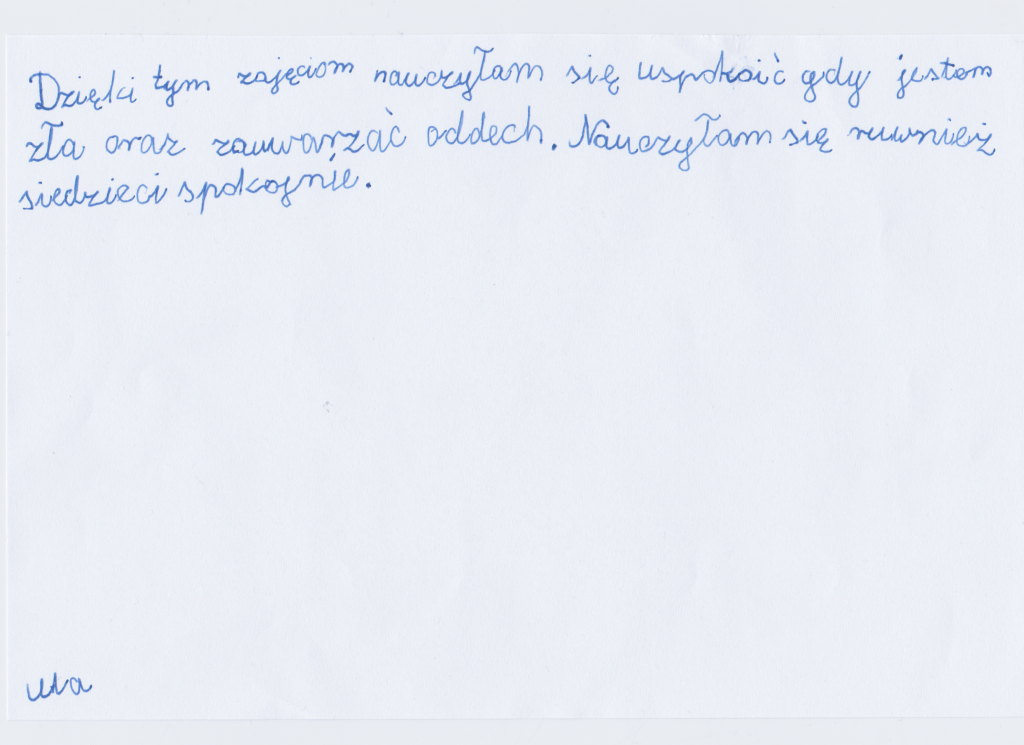 Dzięki tym zajęciom nauczyłam się uspokoić gdy jestem
zła oraz zauwarzać oddech. Nauczyłam się ruwnież
siedzieci spokojnie.